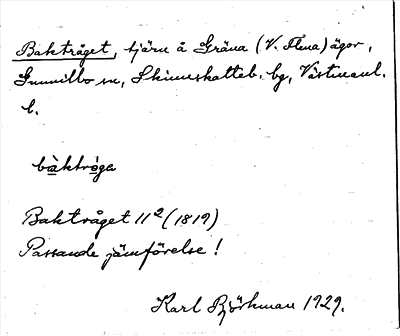 Baktråget, tjärn å Gräna (V. Flena) ägor,
Gunnilbo sn, Skinnskatteb. bg, Västmanl.
l.
bàktrọga
Baktråget 11² (1819)
Passande jämförelse!
Karl Björkman 1929.